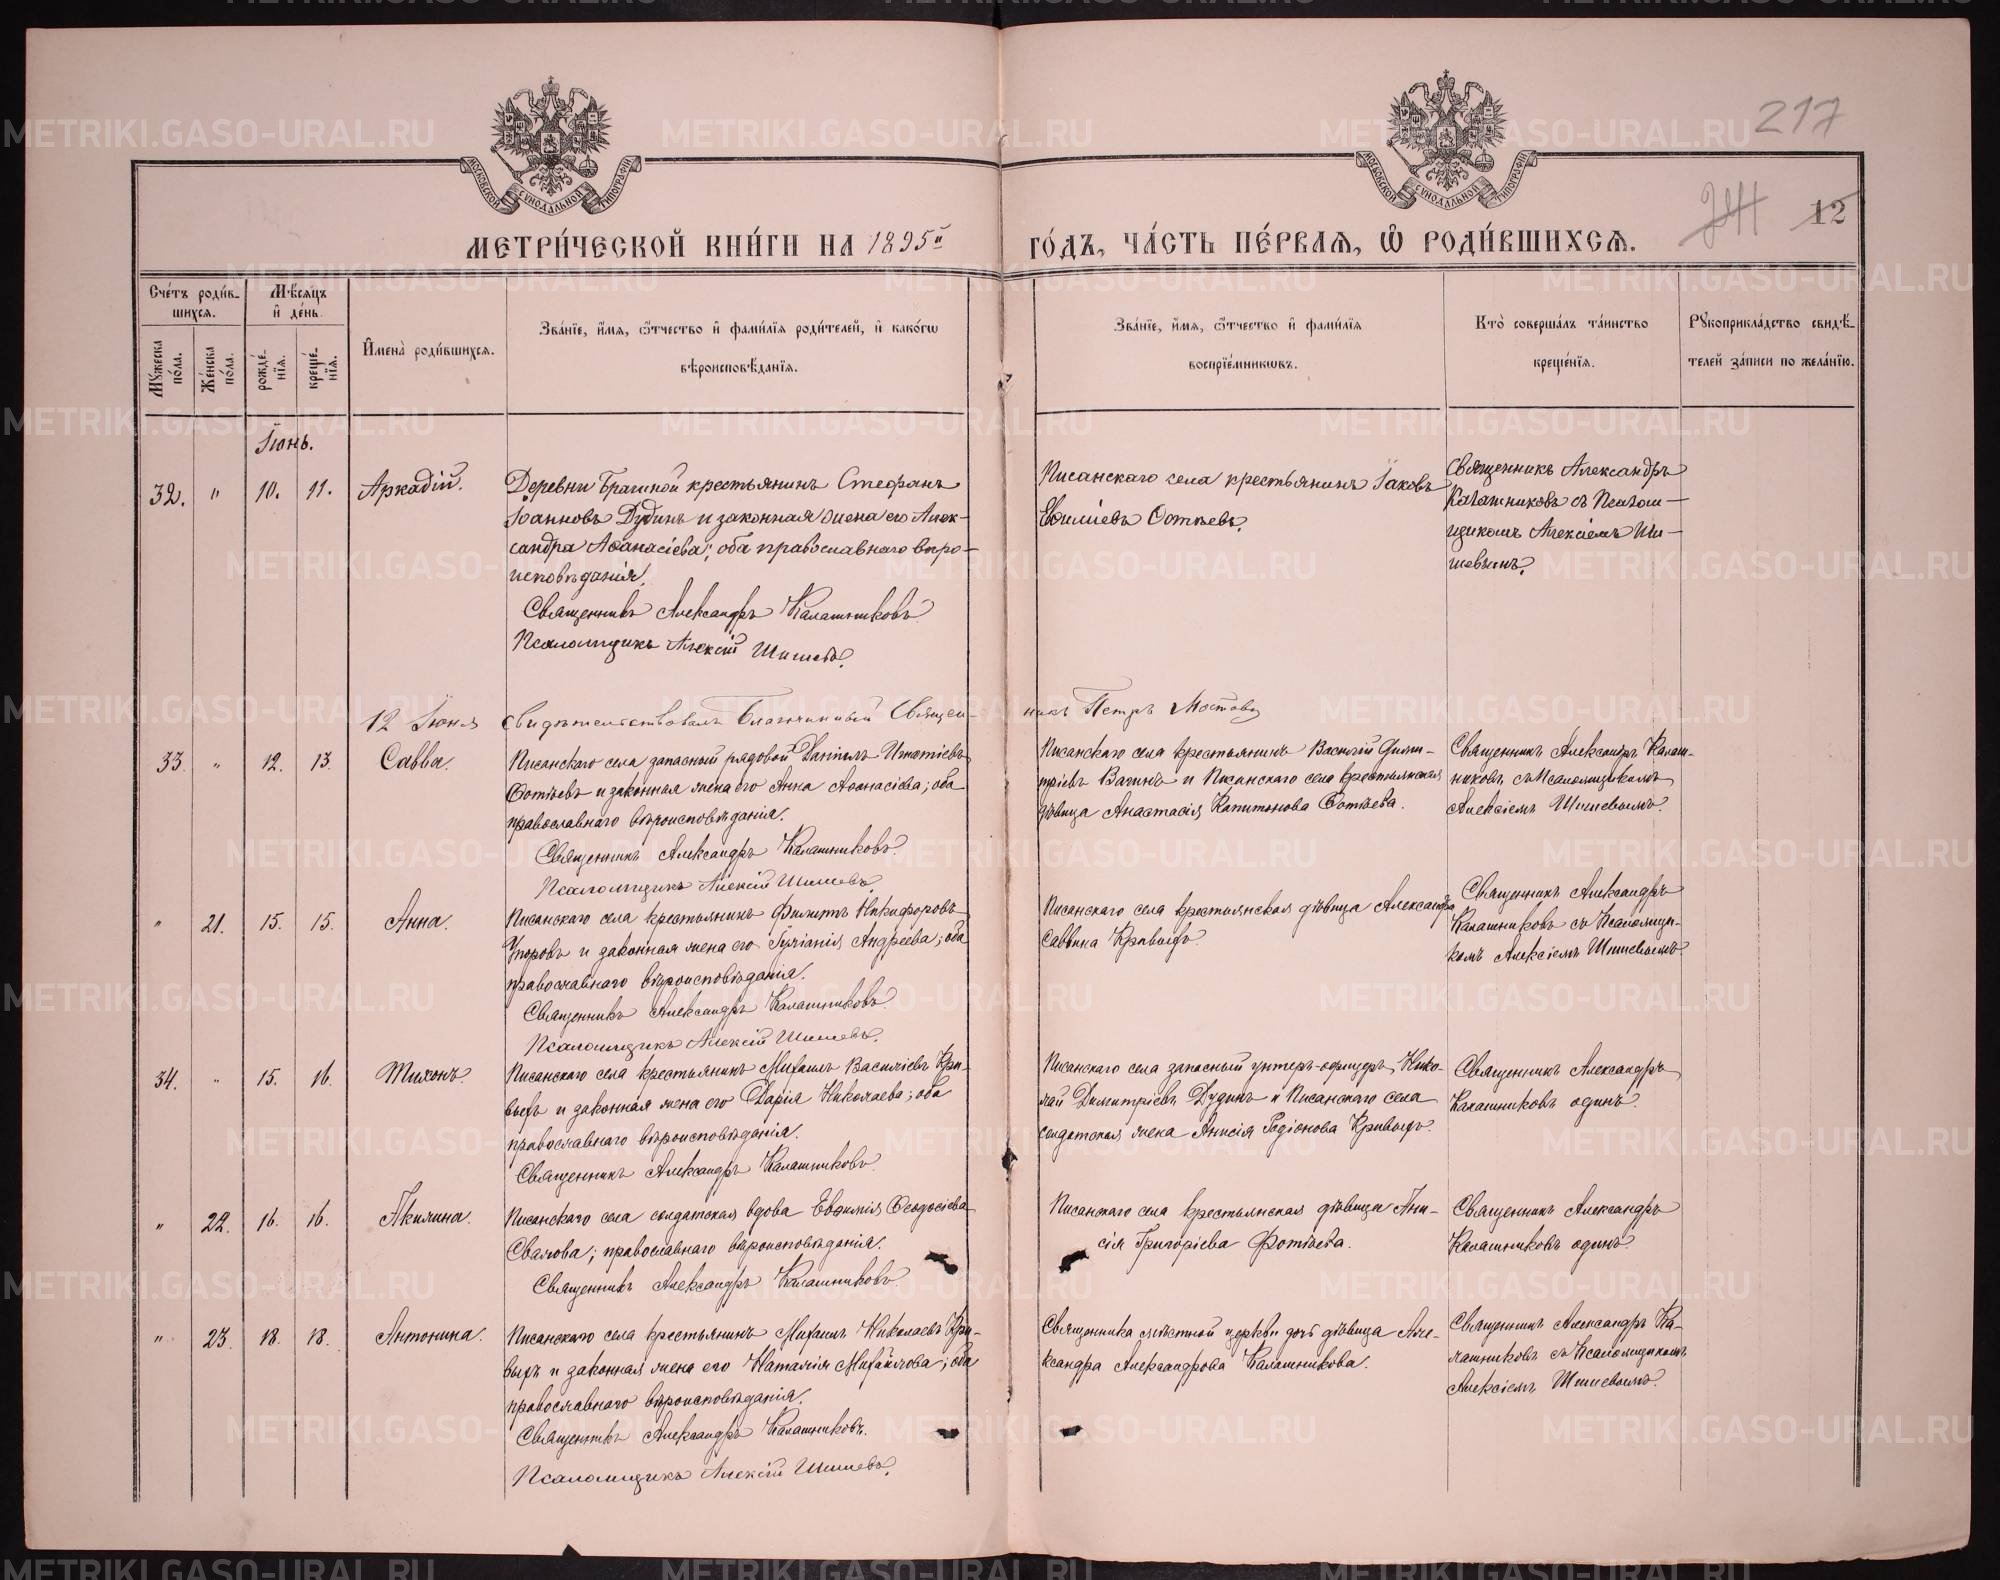 217
12
МОСКОВСКОЙ СѴНОДАЛЬНОЙ ТИПОГРАФІИ
МОСКОВСКОЙ СѴНОДАЛЬНОЙ ТИПОГРАФІИ
МЕТРИ́ЧЕСКОЙ КНИ́ГИ НА 1895й ГО́ДЪ, ЧА́СТЬ ПЕ́РВАЯ, Ѿ РОДИ́ВШИХСЯ.
Сче́тъ роди́в-
шихся.
Мѣ́сяцъ
и де́нь.
Мꙋжеска по́ла.
Же́нска по́ла.
рожде́нїя.
креще́нїя.
Имена̀ роди́вшихся.
Зва́нїе, и́мя, ѻ́тчество и фами́лїя роди́телей, и како́гѡ
вѣроисповѣ́данїя.
Зва́нїе, и́мя, ѻ́тчество и фами́лїя
воспрїе́мникѡвъ.
Кто̀ соверша́лъ та́инство
креще́нїя.
Рꙋкоприкла́дство свидѣ́-
телей за́писи по жела́нїю.
Іюнь.
32. " 10. 11. Аркадій.
Деревни Брагиной крестьянинъ Стефанъ
Іоанновъ Дудинъ и законная жена его Алек-
сандра Аѳанасіева; оба православнаго вѣро-
исповѣданія.
Священникъ Александръ Калашниковъ.
Псаломщикъ Алексій Шишевъ.
Писанскаго села крестьянинъ Іаковъ
Евѳиміевъ Ѳотѣевъ.
Священникъ Александръ
Калашниковъ съ Псалом-
щикомъ Алексіемъ Ши-
шевымъ.
12 Іюня свидѣтельствовалъ Благочинный Священ-
никъ Петръ Мостовъ
33. " 12. 13. Савва.
Писанскаго села запасный рядовой Даніилъ Игнатіевъ
Ѳотѣевъ и законная жена его Анна Аѳанасіева; оба
православнаго вѣроисповѣданія.
Священникъ Александръ Калашниковъ.
Псаломщикъ Алексій Шишевъ.
Писанскаго села крестьянинъ Василій Дими-
тріевъ Вагинъ и Писанскаго села крестьянская
дѣвица Анастасія Капитонова Ѳотѣева.
Священникъ Александръ Калаш-
никовъ съ Псаломщикомъ
Алексіемъ Шишевымъ.
" 21. 15. 15. Анна.
Писанскаго села крестьянинъ Филиппъ Никифоровъ
Упоровъ и законная жена его Іуліанія Андреева; оба
православнаго вѣроисповѣданія.
Священникъ Александръ Калашниковъ.
Псаломщикъ Алексій Шишевъ.
Писанскаго села крестьянская дѣвица Александра
Саввина Кривыхъ.
Священникъ Александръ
Калашниковъ съ Псаломщи-
комъ Алексіемъ Шишевымъ.
34. " 15. 16. Тихонъ.
Писанскаго села крестьянинъ Михаилъ Василіевъ Кри-
выхъ и законная жена его Дарія Николаева; оба
православнаго вѣроисповѣданія.
Священникъ Александръ Калашниковъ.
Писанскаго села запасный унтеръ-офицеръ Нико-
лай Димитріевъ Дудинъ и Писанскаго села
солдатская жена Анисія Родіонова Кривыхъ.
Священникъ Александръ
Калашниковъ одинъ.
" 22. 16. 16. Акилина.
Писанскаго села солдатская вдова Евѳимія Ѳеодосіева
Свалова; православнаго вѣроисповѣданія.
Священникъ Александръ Калашниковъ.
Писанскаго села крестьянская дѣвица Ани-
сія Григоріева Фотѣева.
Священникъ Александръ
Калашниковъ одинъ.
" 23. 18. 18. Антонина.
Писанскаго села крестьянинъ Михаилъ Николаевъ Кри-
выхъ и законная жена его Наталія Михайлова; оба
православнаго вѣроисповѣданія.
Священникъ Александръ Калашниковъ.
Псаломщикъ Алексій Шишевъ.
Священника мѣстной церкви дочь дѣвица Але-
ксандра Александрова Калашникова.
Священникъ Александръ Ка-
лашниковъ съ Псаломщикомъ
Алексіемъ Шишевымъ.
METRIKI.GASO-URAL.RU